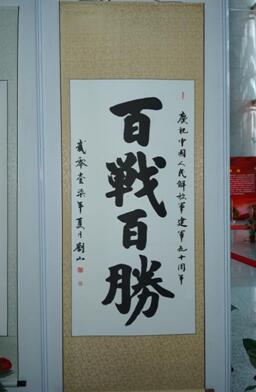 慶祝中國人民解放軍建軍九十周年
百戰百勝
貳零壹柒年夏月劉山